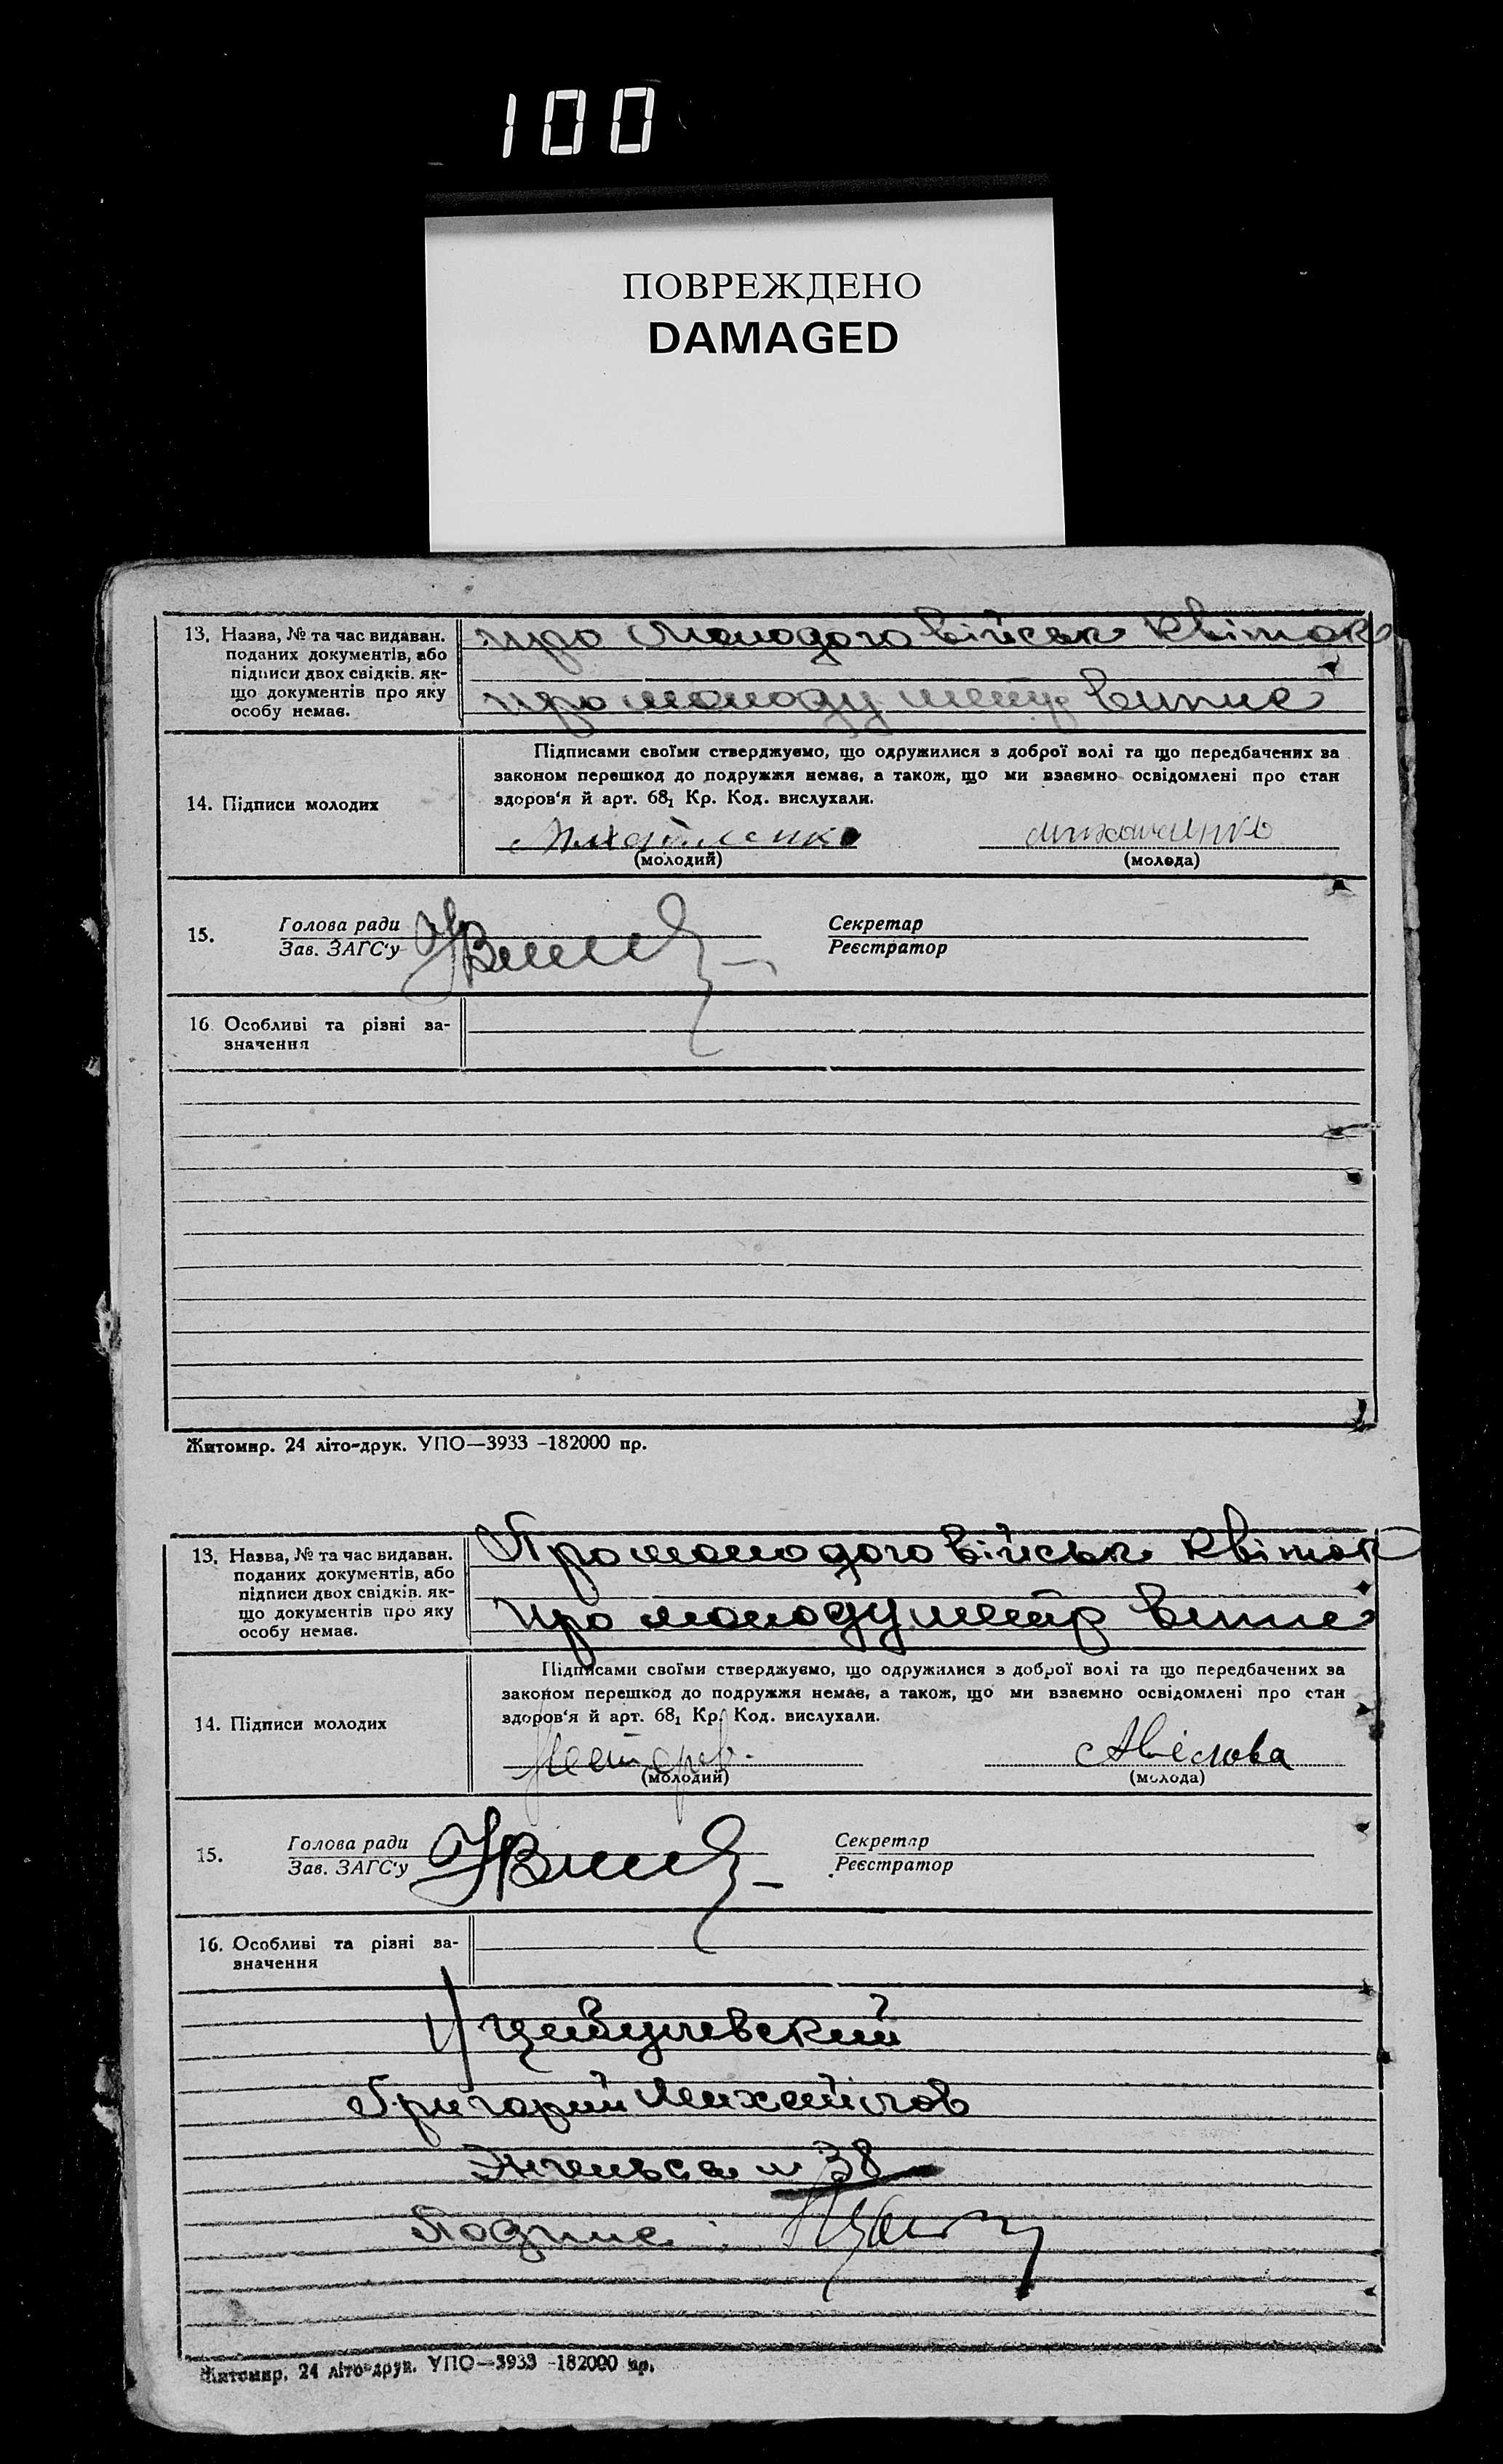 100
ПОВРЕЖДЕНО
DAMAGED
13. Назва, № та час видаван. поданих документів, або підписи двох свідків, як-що документів про яку особу немає.
про молодого військ квіток
про молоду метр випис
Підписами своїми стверджуємо, що одружилися з доброї волі та що передбачених за
законом перешкод до подружжя немає, а також, що ми взаємно освідомлені про стан
здоров'я й арт. 68₁ Кр. Код. вислухали.
14. Підписи молодих
(молодий) (молода)
15. Голова ради Секретар
Зав. ЗАГС'у Реєстратор
16. Особливі та різні за-
значення
Житомир. 24 літо-друк. УПО—3933 -182000 пр.
13. Назва, № та час видаван. поданих документів, або підписи двох свідків, як-що документів про яку особу немає.
Про молодого військ квіток
про молоду метр випис
Підписами своїми стверджуємо, що одружилися з доброї волі та що передбачених за
законом перешкод до подружжя немає, а також, що ми взаємно освідомлені про стан
здоров'я й арт. 68₁ Кр. Код. вислухали.
14. Підписи молодих
(молодий) (молода)
15. Голова ради Секретар
Зав. ЗАГС'у Реєстратор
16. Особливі та різні за-
значення
Цибулевский
Григорий Михайлов
Энгельса 38
Подпис:
Житомир. 24 літо-друк. УПО—3933 -182000 пр.